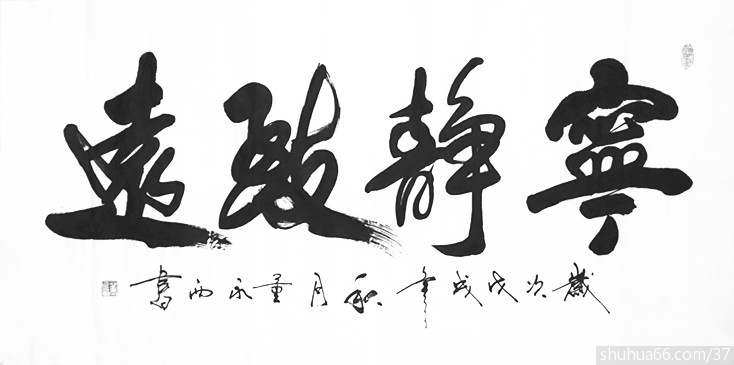 寧靜致遠
歲次戊戌年秋月董永西書
shuhua66.com/37